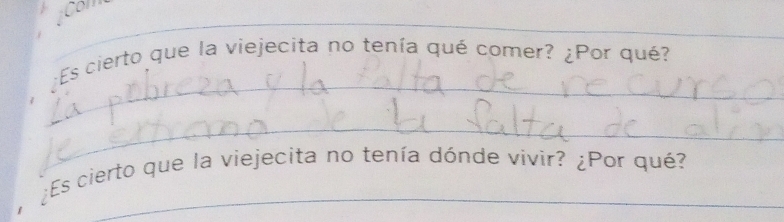 ¿Com
¿Es cierto que la viejecita no tenía qué comer? ¿Por qué?
La pobreza y la falta de recurso
de la falta de
¿Es cierto que la viejecita no tenía dónde vivir? ¿Por qué?